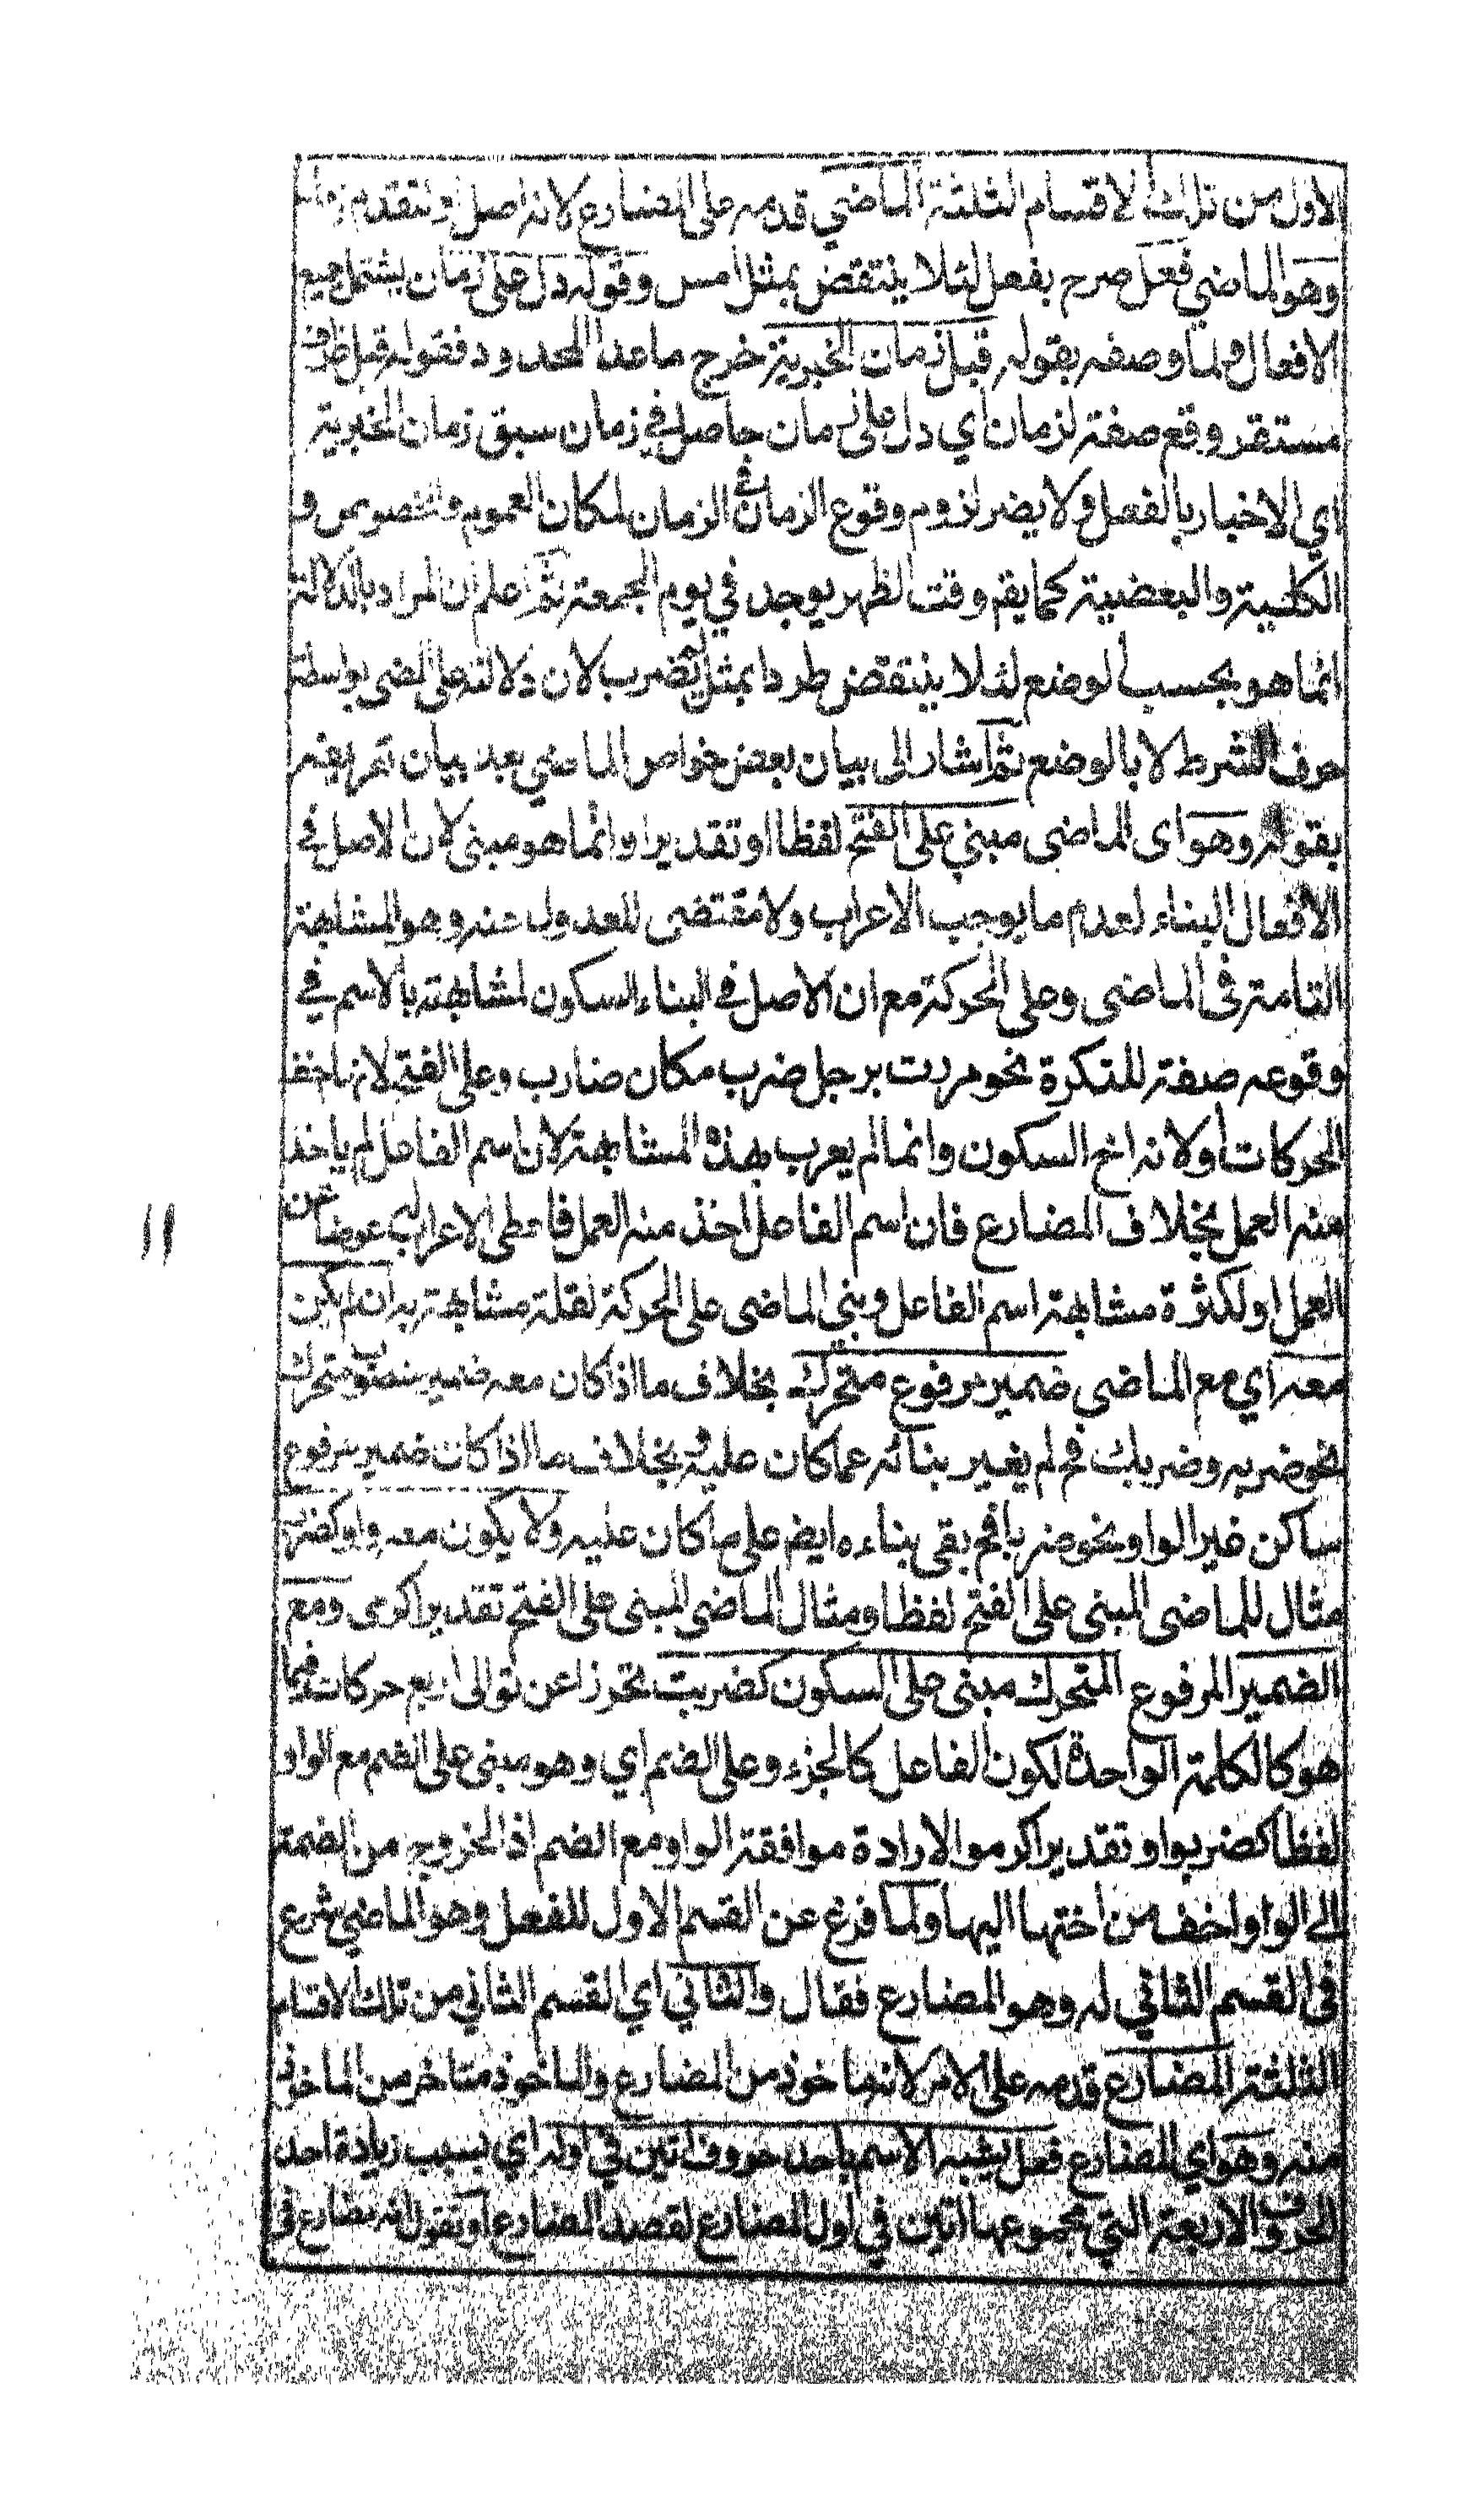 الاول من تلك الاقسام الثلثة الماضي قدمه على المضارع لانه اصل او لتقدم زمانه
وهو الماضي فعل صرح بفعل لئلا ينتقض بمثل امس وقوله دل على زمان يشتمل جميع
الافعال ولما وصفه بقوله قبل زمان الخبرية خرج ما عدا المحدود فقوله قبل ظرف
مستقر وقع صفة لزمان اي دل على زمان حاصل في زمان سبق زمان الخبرية
اي الاخبار بالفعل ولا يضر لزوم وقوع الزمان في الزمان لمكان العموم والخصوص و
الكلية والبعضية كما يقم وقت الظهر يوجد في يوم الجمعة ثم اعلم ان المراد بالدلالة
انما هو بحسب الوضع لئلا ينتقض طردا بمثل لم يضرب لان دلالته على المضى بواسطة
حرف الشرط لا بالوضع ثم اشار الى بيان بعض خواص الماضي بعد بيان تعريفه
بقوله وهو اى الماضى مبني على الفتح لفظا او تقديرا وانما هو مبنى لان الاصل في
الافعال البناء لعدم ما يوجب الاعراب ولا مقتضى للعدول عنه وهو المشابهة
التامة فى الماضى وعلى الحركة مع ان الاصل في البناء السكون لمشابهته بالاسم في
وقوعه صفة للنكرة نحو مررت برجل ضرب مكان ضارب وعلى الفتح لانها اخف
الحركات او لانه اخ السكون وانما لم يعرب بهذه المشابهة لان اسم الفاعل لم ياخذ
منه العمل بخلاف المضارع فان اسم الفاعل اخذ منه العمل فاعطى الاعراب له عوضا عن
العمل او لكثرة مشابهة اسم الفاعل وبني الماضى على الحركة لقلة مشابهته به ان لم يكن
معه اي مع الماضي ضمير مرفوع متحرك بخلاف ما اذا كان معه ضمير منصوب متحرك
نحو ضربه وضربك فح لم يغير بنائه عما كان عليه وبخلاف ما اذا كان ضمير مرفوع
ساكن غير الواو نحو ضربا فح بقى بناءه ايض على ما كان عليه ولا يكون معه واو كضرب
مثال للماضى المبنى على الفتح لفظا ومثال الماضى المبنى على الفتح تقديرا كرمى ومع
الضمير المرفوع المتحرك مبنى على السكون كضربت تحرزا عن توالى اربع حركات فيما
هو كالكلمة الواحدة لكون الفاعل كالجزء وعلى الضم اي وهو مبنى على الضم مع الواو
لفظا كضربوا وتقديرا كرموا لارادة موافقة الواو مع الضم اذ الخروج من الضمة
الى الواو اخف من اختها اليها ولما فرغ عن القسم الاول للفعل وهو الماضي شرع
فى القسم الثاني له وهو المضارع فقال والثاني اي القسم الثاني من تلك الاقسام
الثلثة المضارع قدمه على الامر لانه ماخوذ من المضارع والماخوذ متاخر من الماخوذ
منه وهو اي المضارع فعل يشبه الاسم باحد حروف اتين في اوله اي بسبب زيادة احد
الحروف الاربعة التي مجموعها اتين في اول المضارع لقصد المضارع او نقول انه مضارع فى
١١